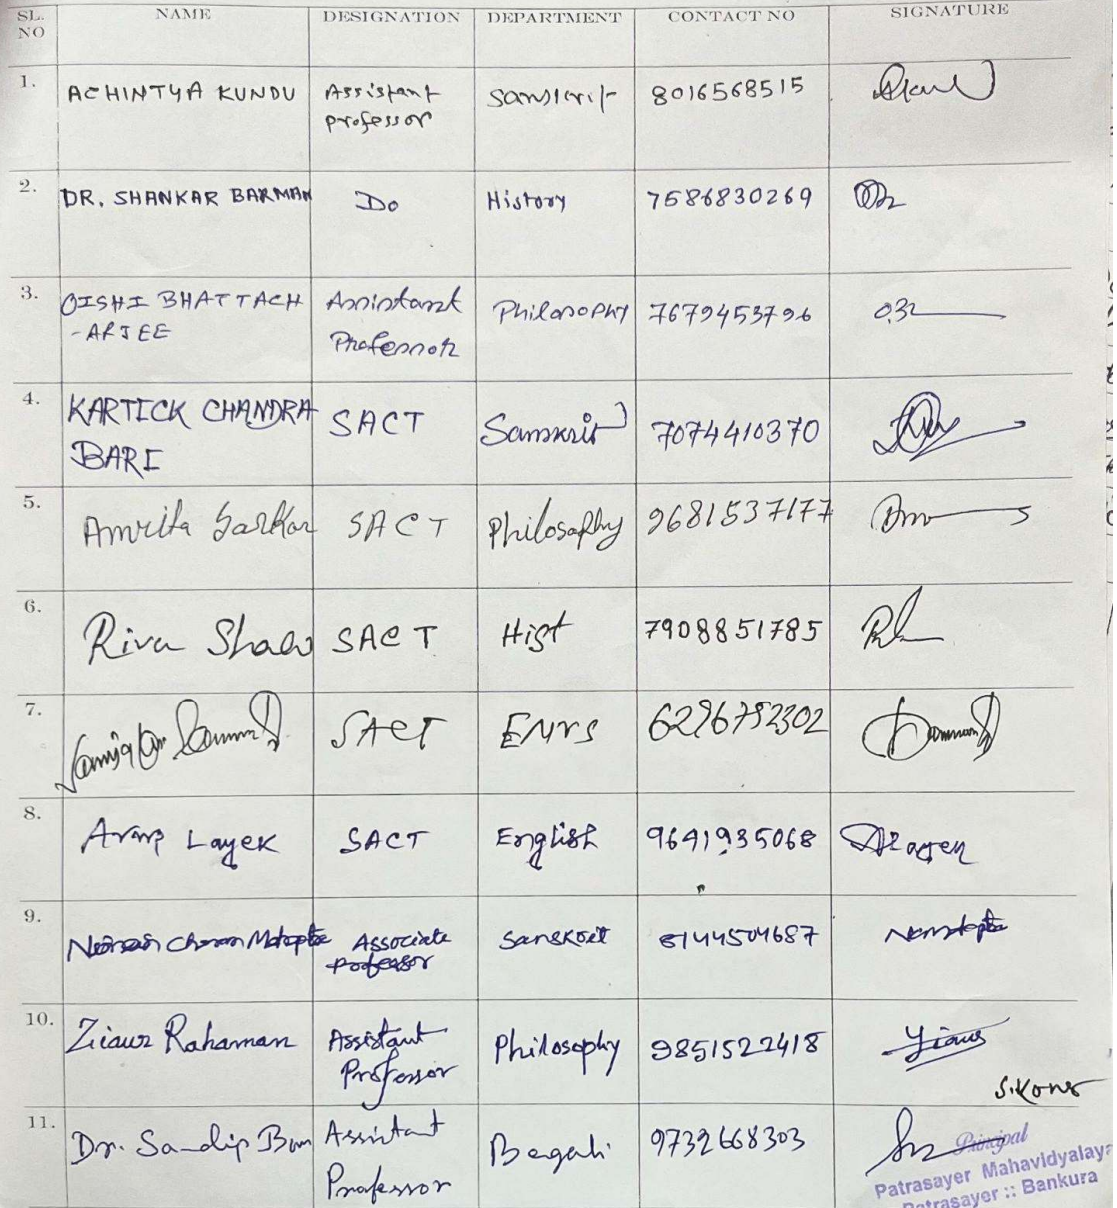 SL. NO NAME DESIGNATION DEPARTMENT CONTACT NO SIGNATURE
1. ACHINTYA KUNDU Assistant professor Sanskrit 8016568515
2. DR. SHANKAR BARMAN Do History 7586830269
3. OISHI BHATTACH -ARJEE Assistant Professor Philosophy 7679453796
4. KARTICK CHANDRA BARI SACT Sanskrit 7074410370
5. Amrita Sarkar SACT Philosophy 9681537177
6. Riva Shaw SACT Hist 7908851785
7. SACT ENVS 6296752302
8. Arup Layek SACT English 9641935068
9. Charan Associate professor Sanskrit 8144504687
10. Ziaur Rahaman Assistant Professor Philosophy 9851522418
11. Dr. Sandip Assistant Professor Begali 9732668303
Principal
Patrasayer Mahavidyalaya
Patrasayer :: Bankura